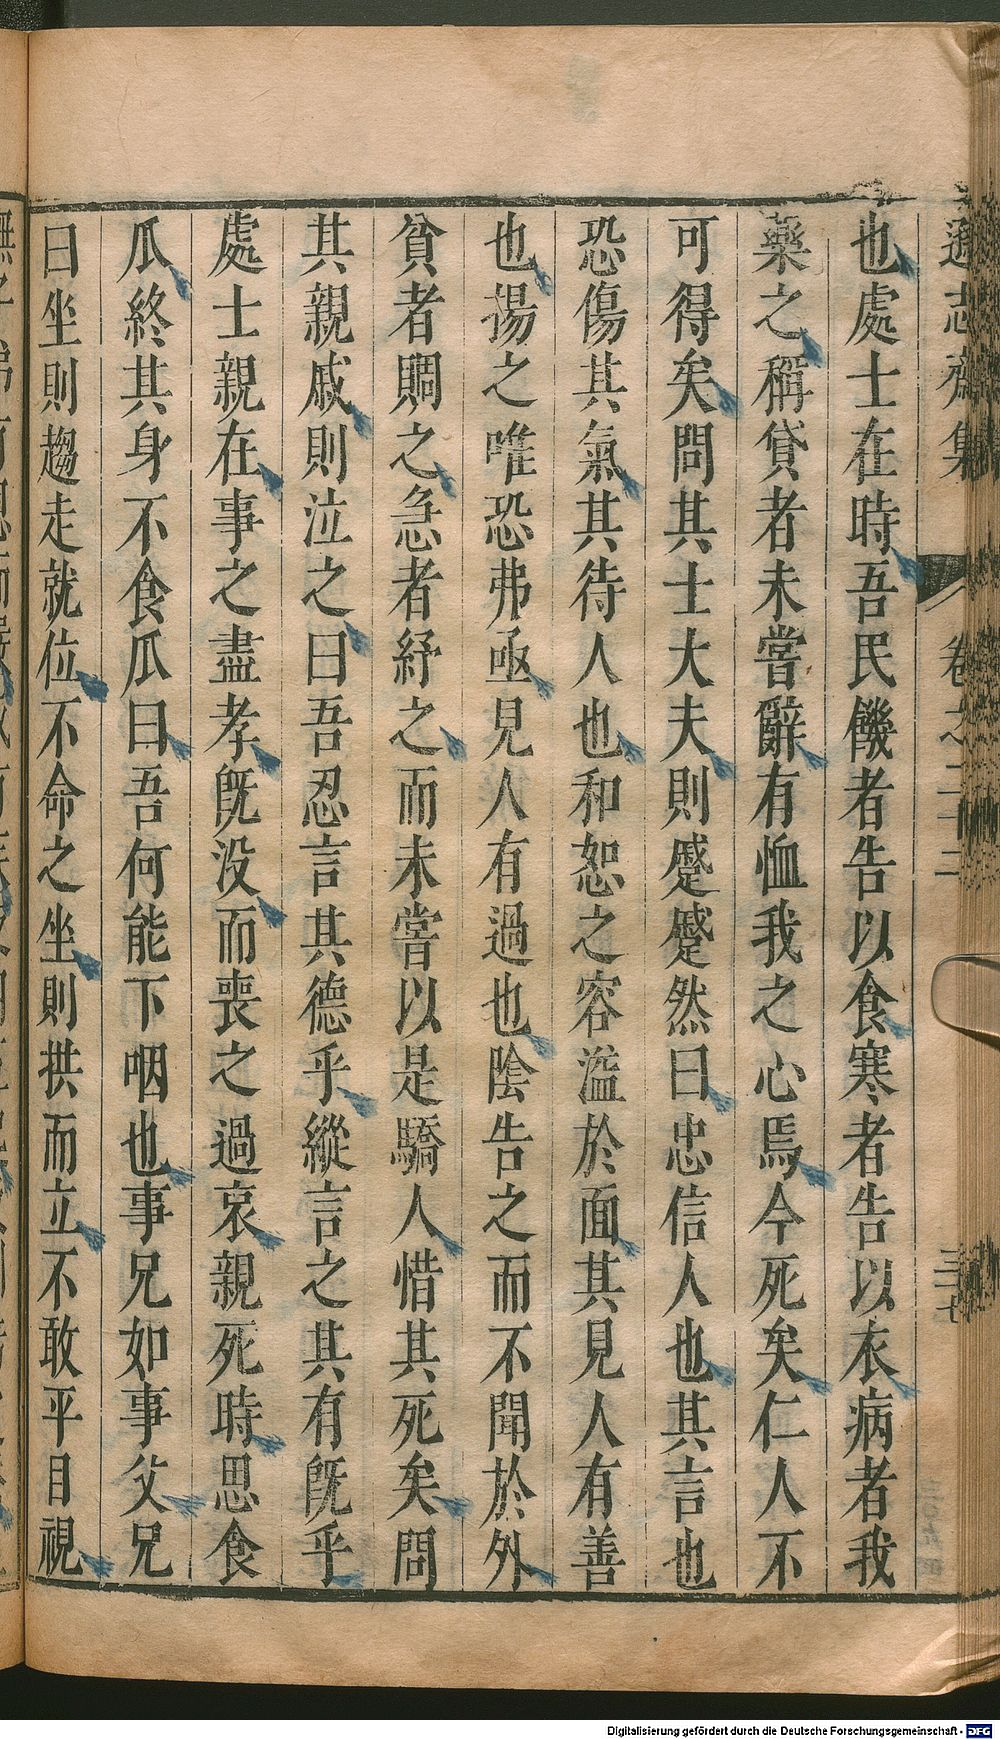 遜志齋集 卷之二十二 三十七
也處士在時吾民饑者告以食寒者告以衣病者我
藥之稱貸者未嘗辭有恤我之心焉今死矣仁人不
可得矣問其士大夫則蹙蹙然曰忠信人也其言也
恐傷其氣其待人也和恕之容溢於面其見人有善
也揚之唯恐弗亟見人有過也陰告之而不聞於外
貧者賙之急者紓之而未嘗以是驕人惜其死矣問
其親戚則泣之曰吾忍言其德乎縱言之其有旣乎
處士親在事之盡孝旣没而喪之過哀親死時思食
瓜終其身不食瓜曰吾何能下咽也事兄如事父兄
曰坐則趨走就位不命之坐則拱而立不敢平目視
Digitalisierung gefördert durch die Deutsche Forschungsgemeinschaft - DFG